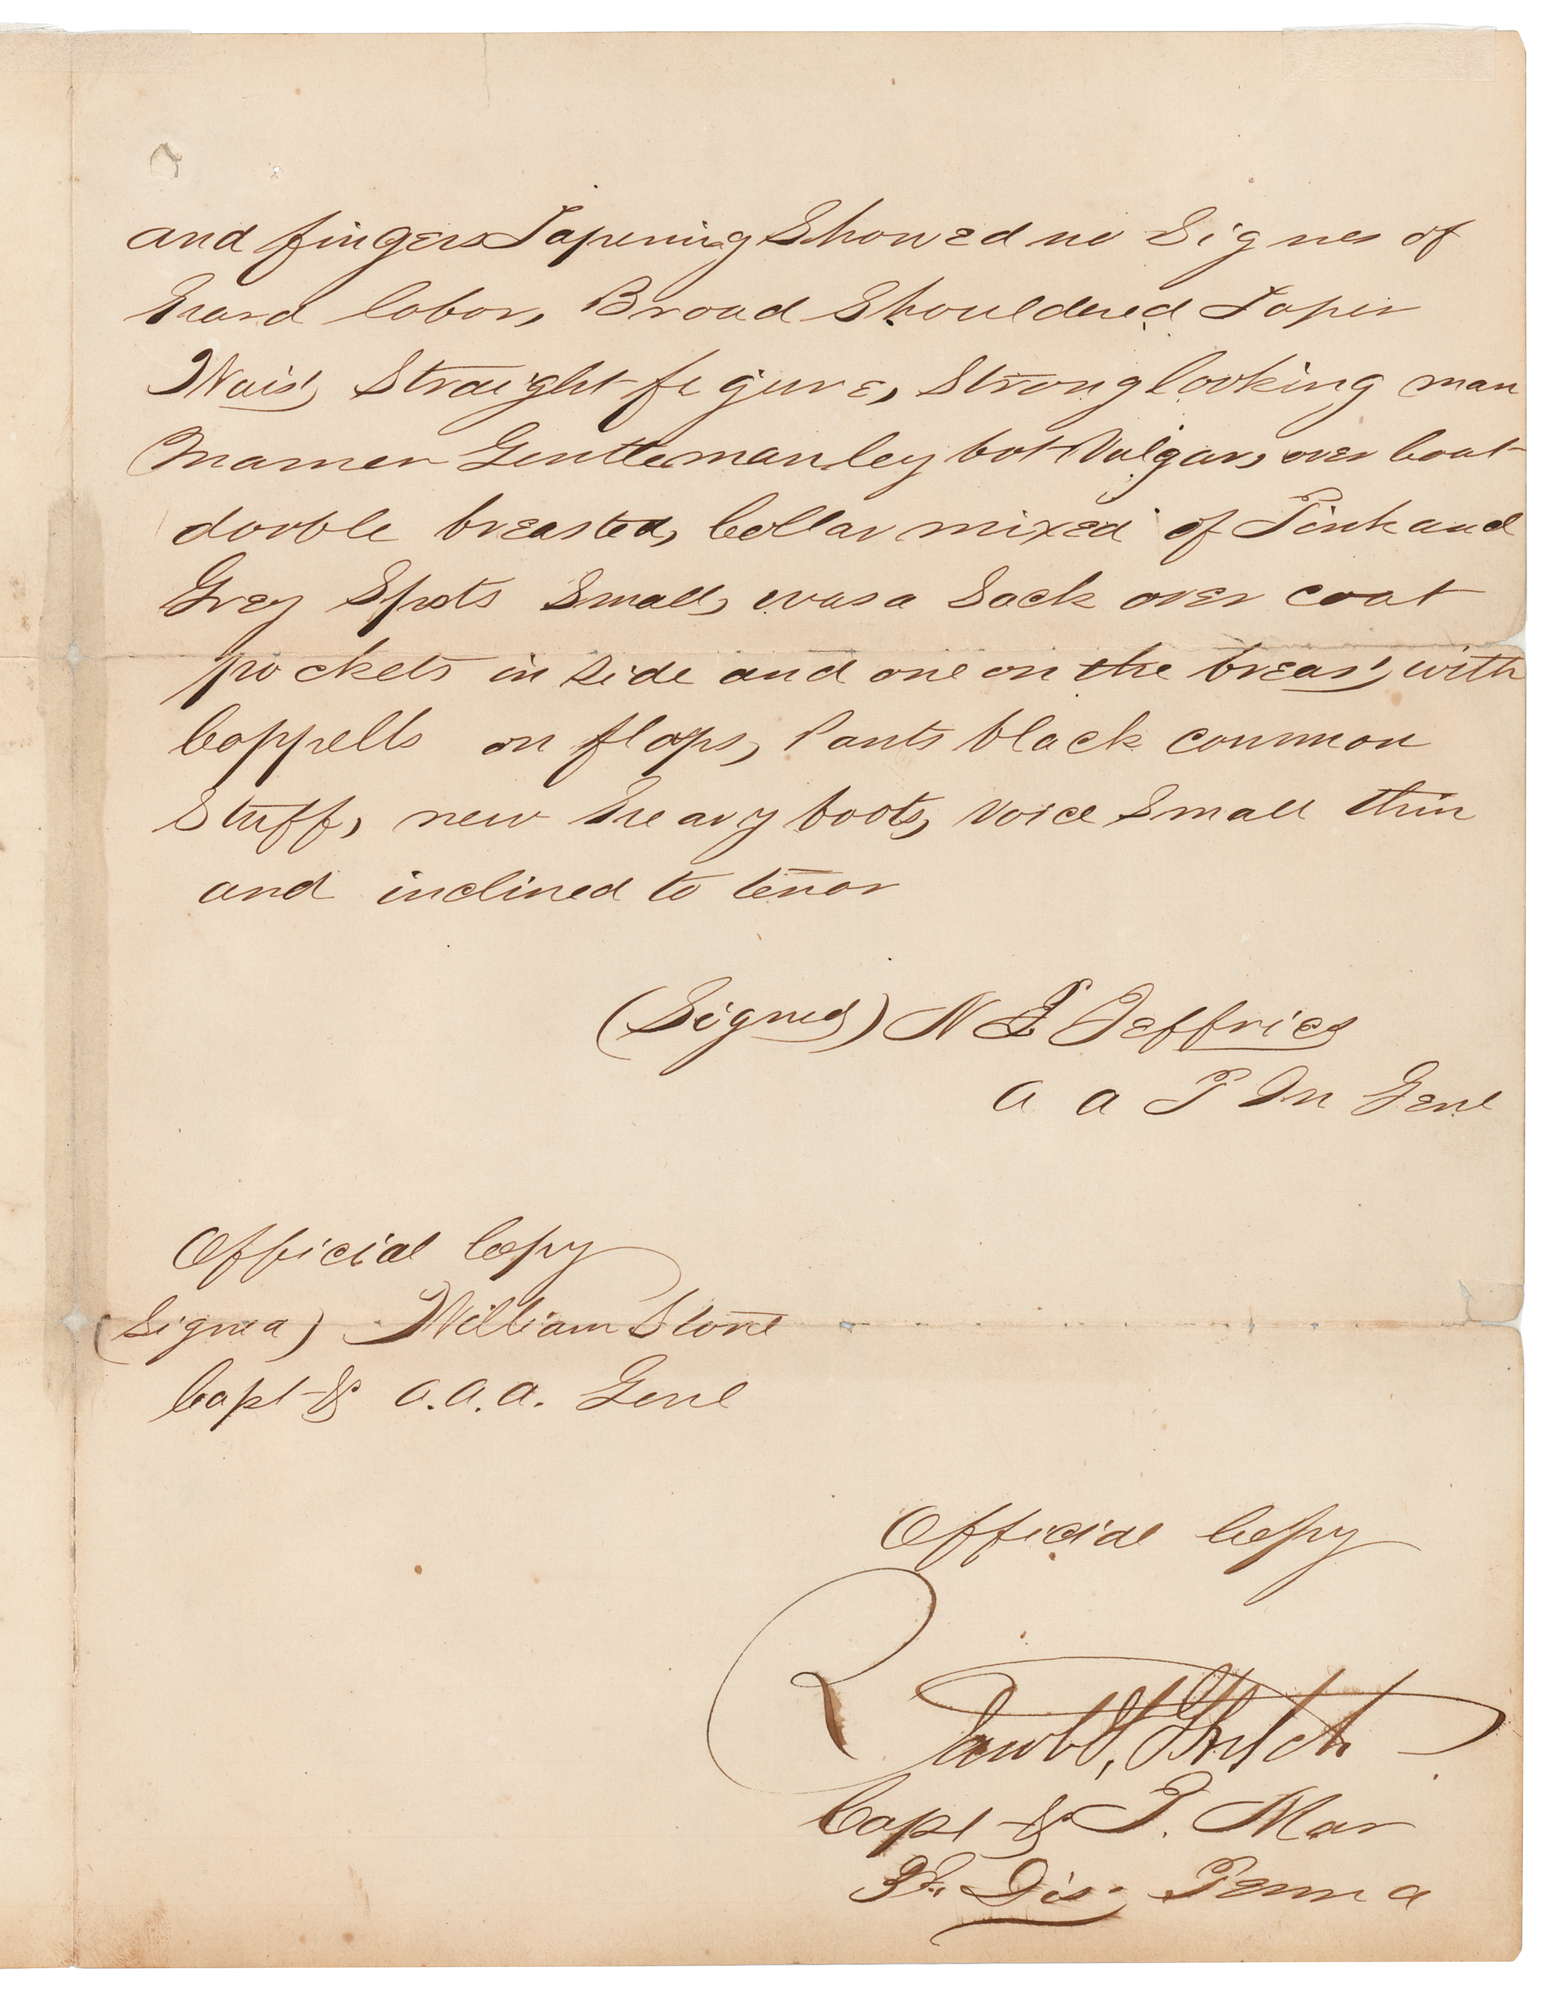 and fingers Tapering Showed no Signes of
Hard labor, Broad Shouldered Taper
Waist, Straight figure, Strong looking man
Manner Gentlemanley bot Vulgar, over Coat
dooble breasted, Collar mixed of Pink and
Grey Spots Small, was a Sack over coat
pockets in side and one on the breast, with
Lappells on flaps, Pants black common
Stuff, new heavy boots, Voice Small thin
and inclined to tenor
(Signed) N L Jeffries
A A P M Genl
Official Copy
(Signed) William Stone
Capt & A.A.A. Genl
Official Copy
Capt & P. Mar
Dis. Penna